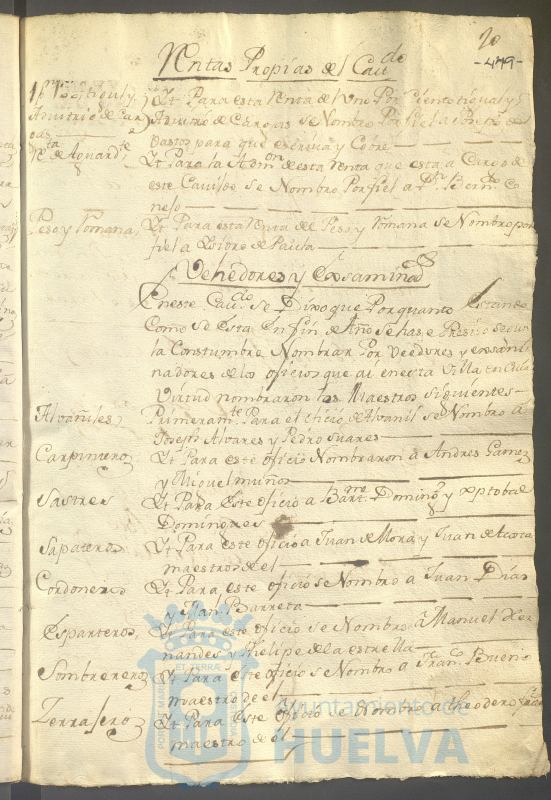 20
-479-
Rentas Propias del Cavdo
Ytt Para esta Renta del Uno Por Ciento tiguas y
Arvitrio de Cargas se Nombro Por fiel a
Arvitrio de Car
gas
para que escriva y Cobre
Rta de Aguardte
Ytt Para la Admon de esta Renta que esta a Cargo de
este Cavildo se Nombro Por fiel a Dn Berndo Ca
nelo
Peso y Romana
Ytt Para esta Renta de Peso y Romana se Nombro por
fiel a Isidro de Paula
Vehedores y Exsaminads
En este Cavdo se Dixo que Por quanto Estando
Como se Esta En fin de Año se hase Presiso segun
la Constumbre Nombrar Por Veedores y exsami
nadores de los oficios que ai en esta Villa en Cuia
Virtud nombraron los Maestros siguientes
Alvañiles
Primeramte Para el oficio de Alvañil se Nombro a
Joseph Alvares y Pedro Suares
Carpinteros
Ytt Para este oficio Nombraron a Andres Gamez
y Miguel muños
Sastres
Ytt Para Este oficio a Barme Domingz y xptobal
Domingues
Sapateros
Ytt Para este oficio a Juan de Mora y Juan de Acosta
maestros de el
Cordoneros
Ytt Para este oficio se Nombro a Juan Dias
y Juan Barreta
Esparteros
Ytt Para este oficio se Nombro a Manuel Her
nandes y Phelipe de la estrella
Sombrereros
Ytt Para este oficio se Nombro a Franco Bueno
maestro de el
Zerrajero
Ytt Para Este oficio se Nombro a theodoro
maestro de el
Ayuntamiento de
HUELVA